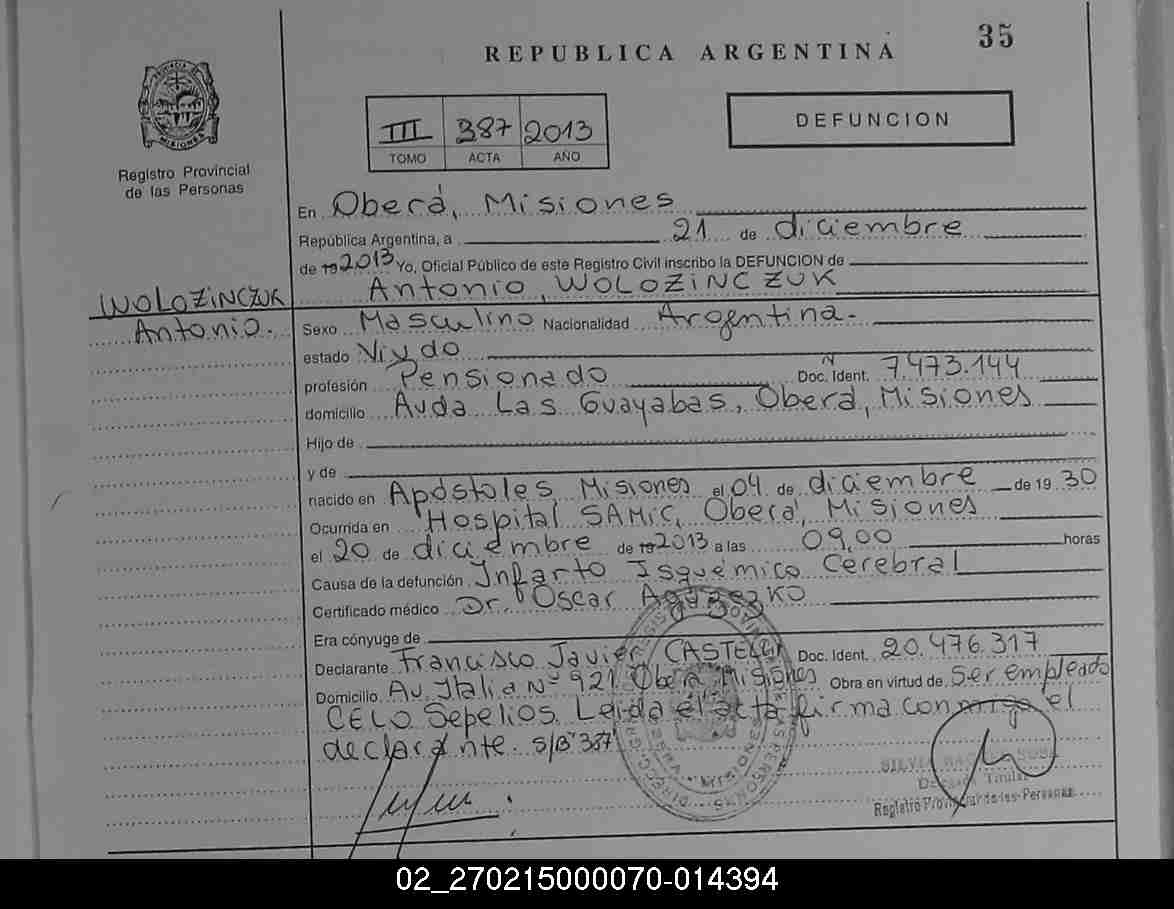 35
REPUBLICA ARGENTINA
PROVINCIA DE
MISIONES
Registro Provincial
de las Personas
III 387 2013
TOMO ACTA AÑO
DEFUNCION
En Oberá, Misiones
República Argentina, a 21 de diciembre
de 19 2013 Yo, Oficial Público de este Registro Civil inscribo la DEFUNCION de
Antonio, WOLOZINCZUK
WOLOZINCZUK
Antonio.
Sexo Masculino Nacionalidad Argentina.-
estado Viudo
profesión Pensionado Doc. Ident. Nº 7.473.144
domicilio Avda Las Guayabas, Oberá, Misiones
Hijo de
y de
nacido en Apóstoles Misiones el 04 de diciembre de 19 30
Ocurrida en Hospital SAMIC, Oberá, Misiones
el 20 de diciembre de 19 2013 a las 09,00 horas
Causa de la defunción Infarto Isquémico Cerebral
Certificado médico Dr. Oscar
Era cónyuge de
Declarante Francisco Javier CASTELLI Doc. Ident. 20.476.317
Domicilio Av. Italia Nº 921 Oberá Misiones Obra en virtud de Ser empleado
CELO Sepelios. Leida el acta firma conmigo el
declarante. S/Bº 387
SILVIA
Titular
Registro Provincial de las Personas
02_270215000070-014394